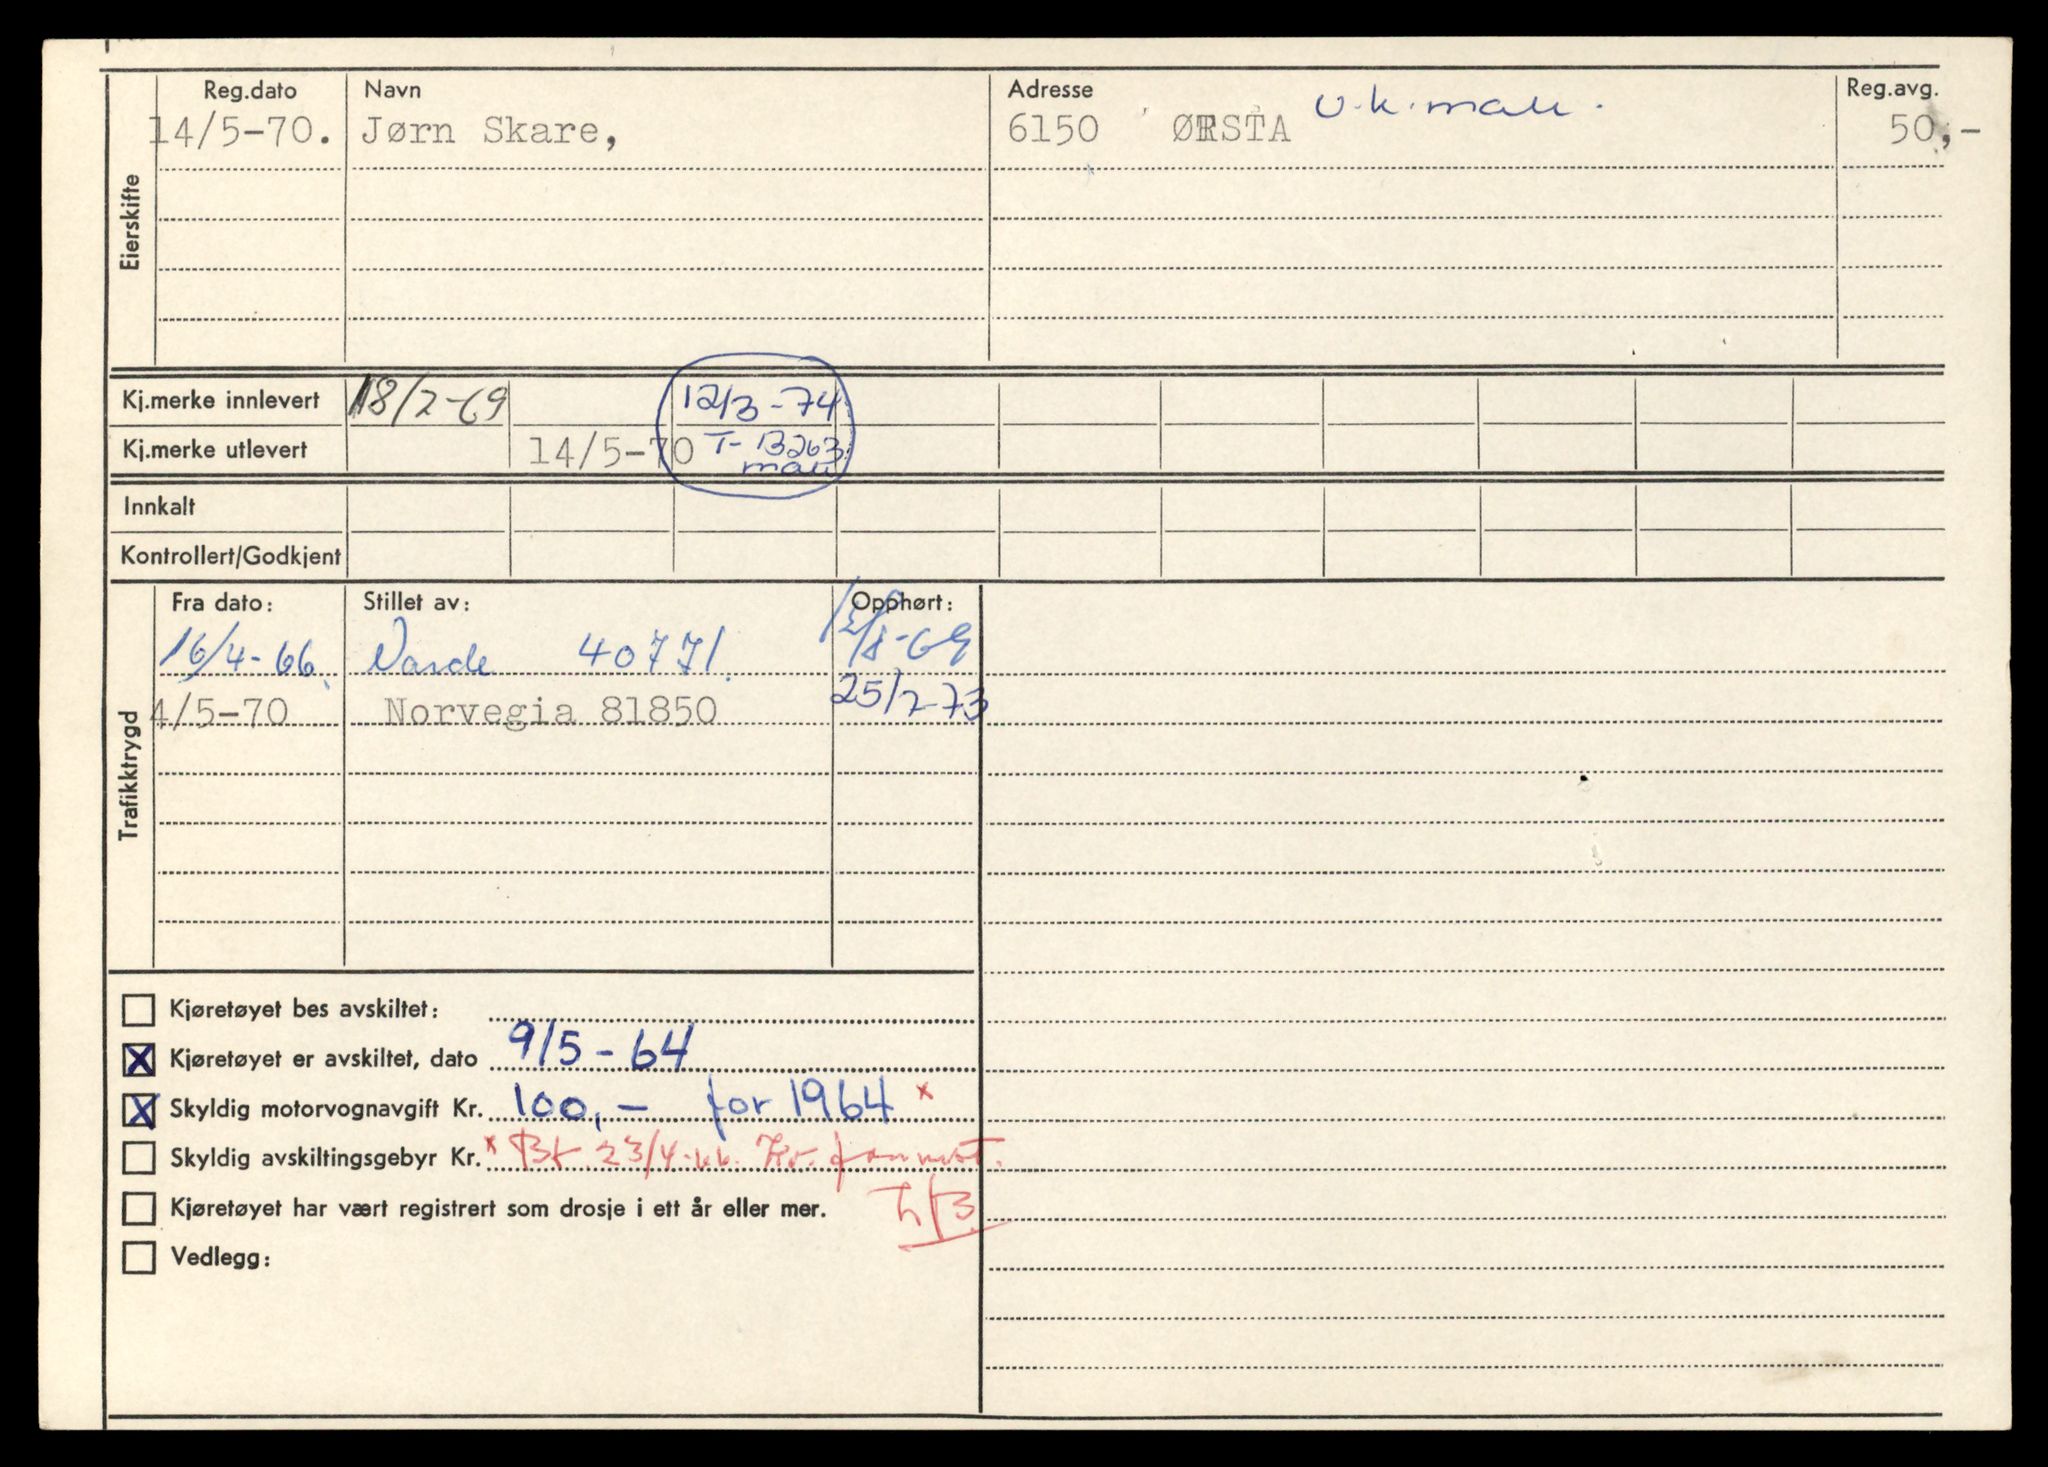 Reg.dato Navn Adresse Reg.avg.
14/5-70. Jørn Skare, 6150 ØRSTA 50,-
Eierskifte
Kj.merke innlevert 18/2-69 12/3-74
Kj.merke utlevert 14/5-70 T-13263
Innkalt
Kontrollert/Godkjent
Trafikktrygd
Fra dato: Stillet av: Opphørt:
16/4-66 Varde 40771
4/5-70 Norvegia 81850 25/7-73
Kjøretøyet bes avskiltet:
X Kjøretøyet er avskiltet, dato 9/5-64
X Skyldig motorvognavgift Kr. 100,- for 1964 x
Skyldig avskiltingsgebyr Kr. x Bt. 23/4-66. Kv.
Kjøretøyet har vært registrert som drosje i ett år eller mer.
Vedlegg: